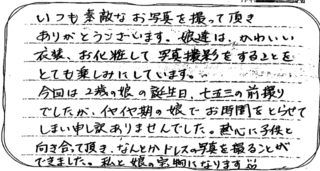 いつも素敵なお写真を撮って頂き
ありがとうございます。娘達は、かわいい
衣装、お化粧して写真撮影をすることを
とても楽しみにしています。
今回は2歳の娘の誕生日、七五三の前撮り
でしたが、イヤイヤ期の娘でお時間をとらせて
しまい申し訳ありませんでした。熱心に子供と
向き合って頂き、なんとかドレスの写真を撮ることが
できました。私と娘の宝物になります